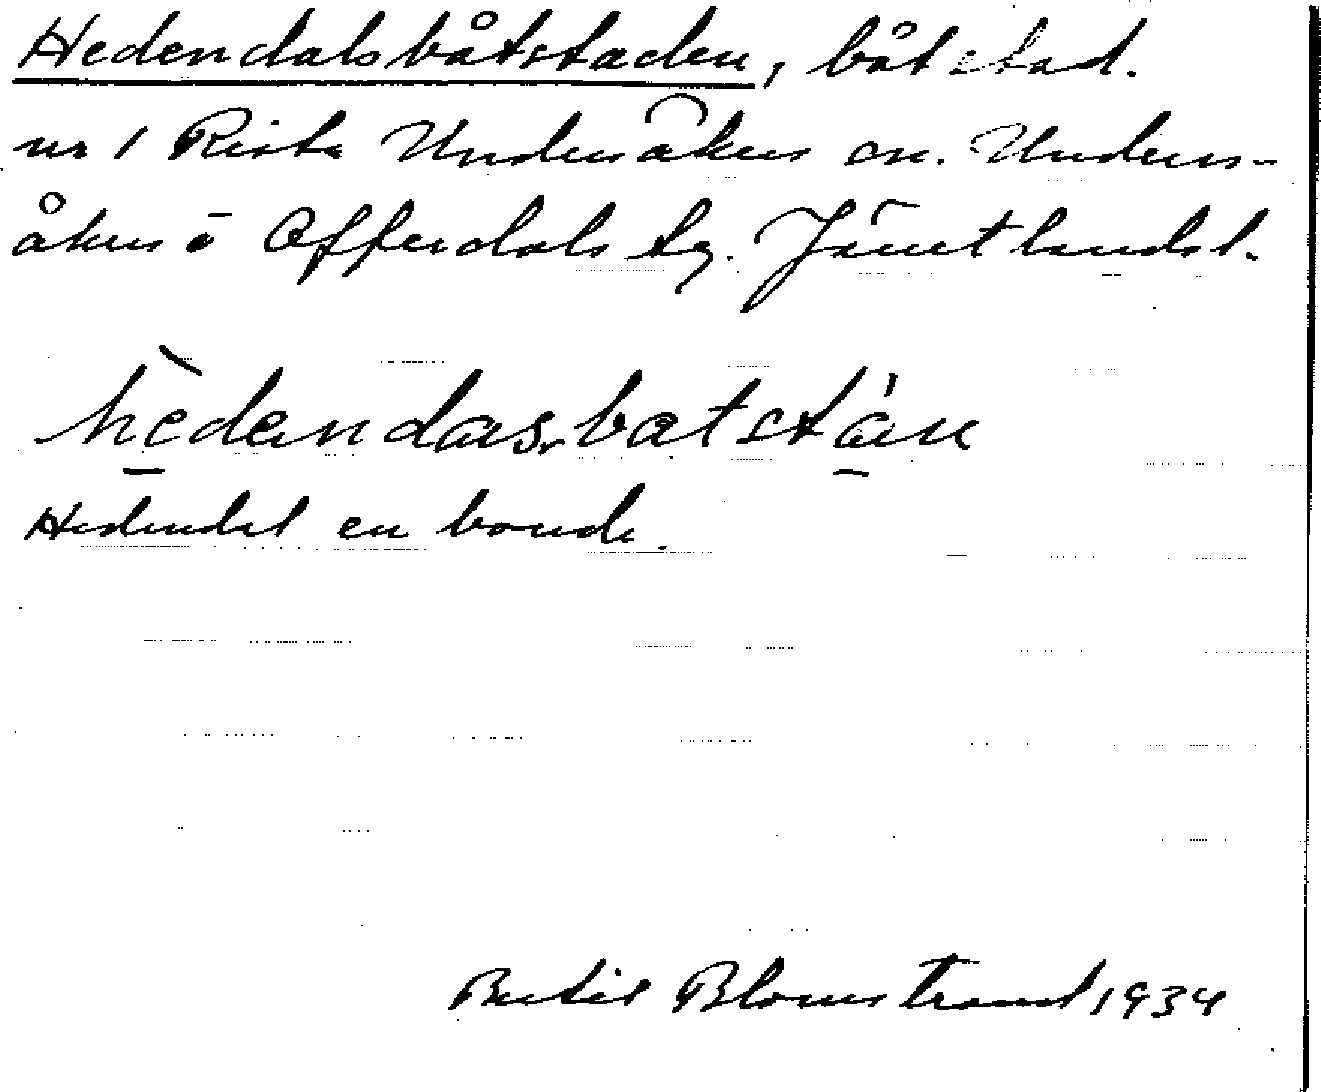 Hedendalsbåtstaden, båtstad.
nr 1 Rista Undersåkers sn. Unders-
åkers o Offerdals tg. Jämtlands l.
hèdendas.batstán
Hedendal en bonde.
Bertil Blomstrand 1934